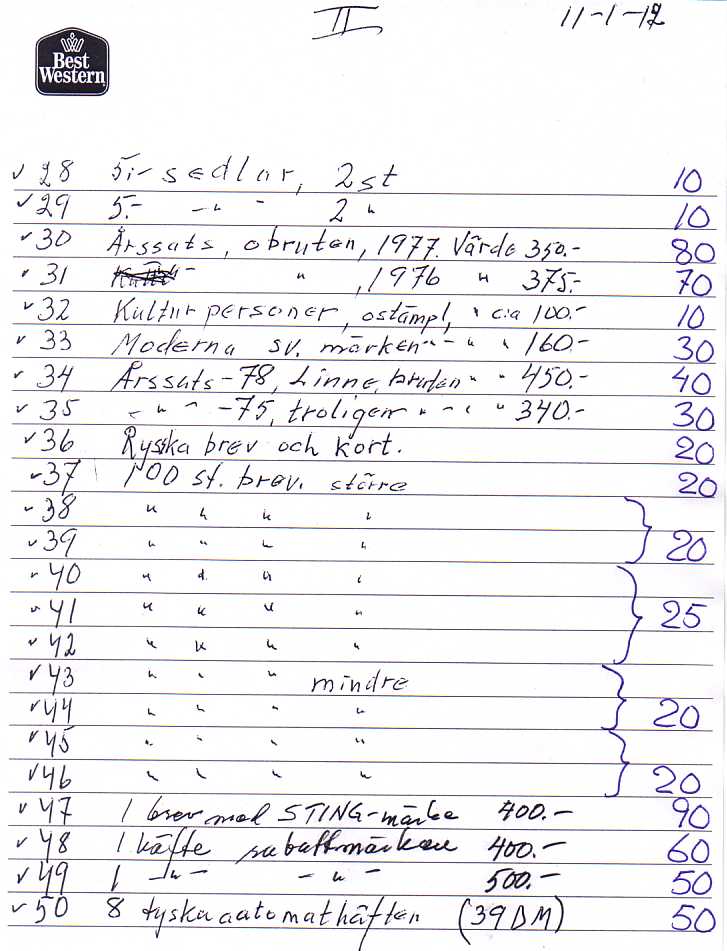 II 11-1-12
Best
Western
✓ 28 5:- sedlar, 2 st 10
✓ 29 5.- -"- 2 " 10
✓ 30 Årssats, obruten, 1977. Värde 350.- 80
✓ 31 " , 1976 " 375.- 70
✓ 32 Kulturpersoner, ostämpl, " c:a 100.- 10
✓ 33 Moderna sv. märken " - " " 160.- 30
✓ 34 Årssats -78, Linne, bruten " " 450.- 40
✓ 35 - " - -75, troligen " - " " 340.- 30
✓ 36 Ryska brev och kort. 20
✓ 37 100 st. brev. större 20
✓ 38 " " " "
✓ 39 " " " " } 20
✓ 40 " " " "
✓ 41 " " " " } 25
✓ 42 " " " "
✓ 43 " " " mindre
✓ 44 " " " " } 20
✓ 45 " " " "
✓ 46 " " " " } 20
✓ 47 1 brev med STING-märke 400.- 90
✓ 48 1 häfte rabattmärken 400.- 60
✓ 49 1 -"- -"- 500.- 50
✓ 50 8 tyska automathäften (39 DM) 50